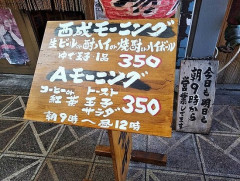 西成モーニング
生ビールor酎ハイor焼酎orハイボール
ゆで玉子 1コ 350
Aモーニング
コーヒーor トースト
紅茶 玉子 350
サラダ
朝9時〜昼12時
今日も明日も
朝9時から
営業してます